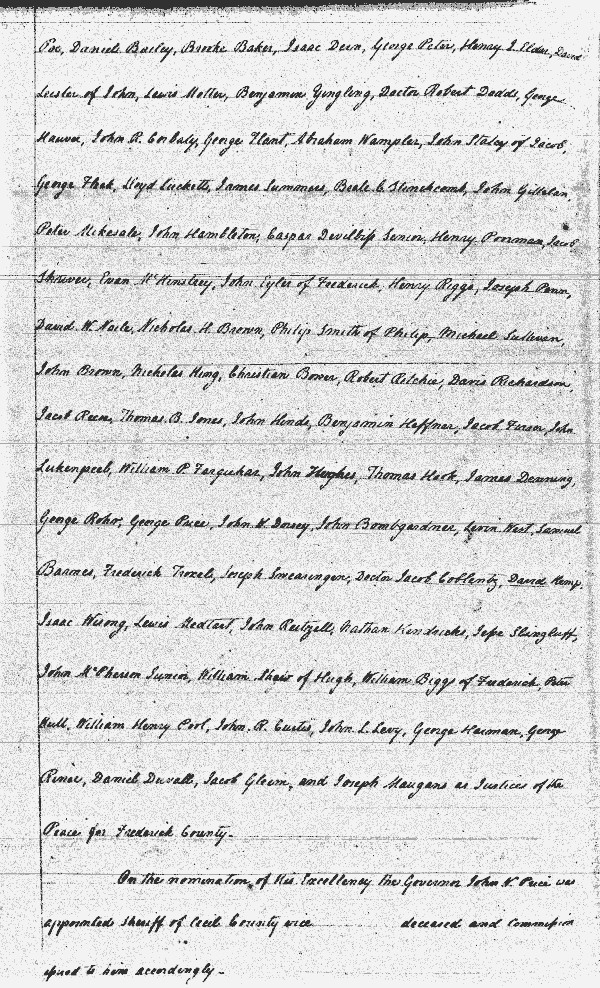 Poe, Daniel Baeley, Brooke Baker, Isaac Dern, George Peter, Henry I. Elder, David
Leister of John, Lewis Motter, Benjamin Yingling, Doctor Robert Dodds, George
Hauver, John R. Corbaly, George Flant, Abraham Wampler, John Staley of Jacob,
George Flook, Lloyd Lucketts, James Summers, Beale C. Stinchcomb, John Gillelan,
Peter Mikesale, John Hambleton, Caspar Devilbiss Senior, Henry Poorman, Jacob
Shriver, Evan McKinstrey, John Eyler of Frederick, Henry Riggs, Joseph Penn,
David W. Naile, Nicholas H. Brown, Philip Smith of Philip, Michael Sullivan,
John Brown, Nicholas King, Christian Bower, Robert Ritchie, Davis Richardson,
Jacob Reese, Thomas B. Jones, John Hinds, Benjamin Heffner, Jacob John
Lukenpeel, William P. Farquhar, John Hughes, Thomas Hook, James Denning,
George Rohr, George Price, John W. Dorsey, John Bombgardner, Levin West, Samuel
Barnes, Frederick Troxell, Joseph Swearingen, Doctor Jacob Coblentz, David Kemp,
Isaac Wisong, Lewis Medtart, John Reitzell, Nathan Kendricks, Jesse Slingluff,
John McPherson Junior, William Shaw of Hugh, William Biggs of Frederick, Peter
Hull, William Henry Pool, John R. Curtis, John L. Levy, George Harman, George
Riner, Daniel Duvall, Jacob Gleim, and Joseph Maugans as Justices of the
Peace for Frederick County.
On the nomination of His Excellency the Governor John N. Price was
appointed Sheriff of Cecil County vice deceased and Commission
issued to him accordingly.